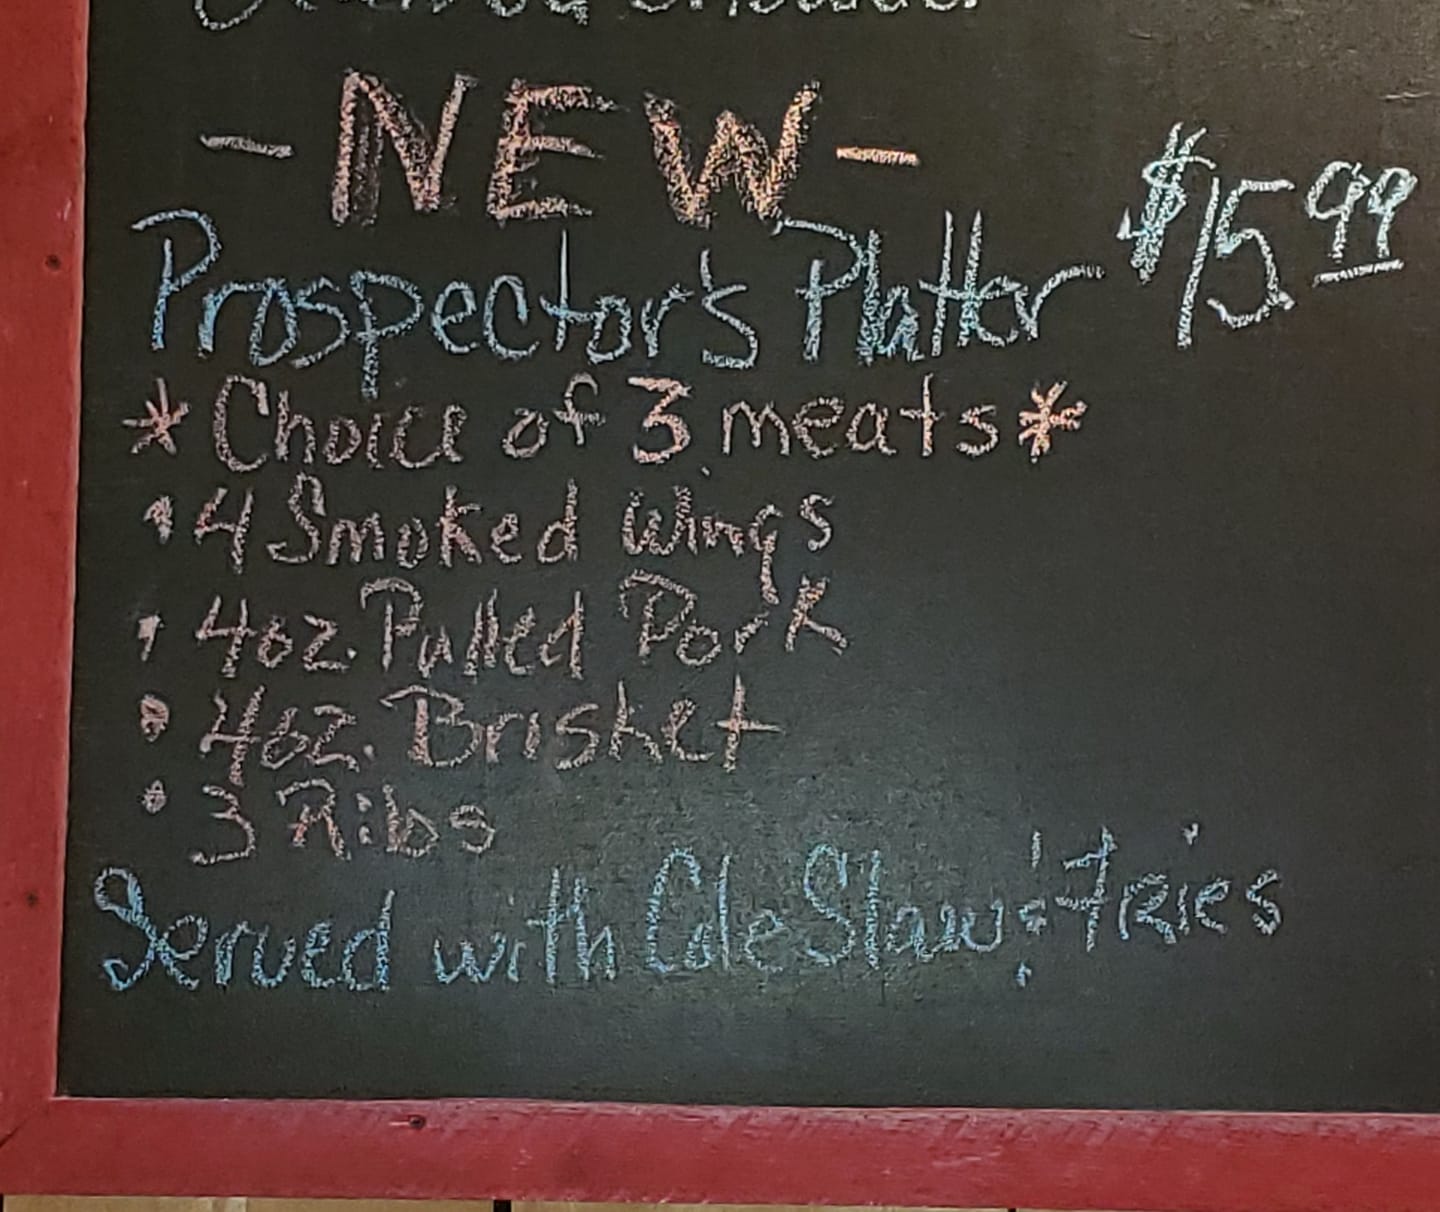 -NEW-
Prospector's Platter $15.99
*Choice of 3 meats*
• 4 Smoked Wings
• 4oz. Pulled Pork
• 4oz. Brisket
• 3 Ribs
Served with Cole Slaw & Fries